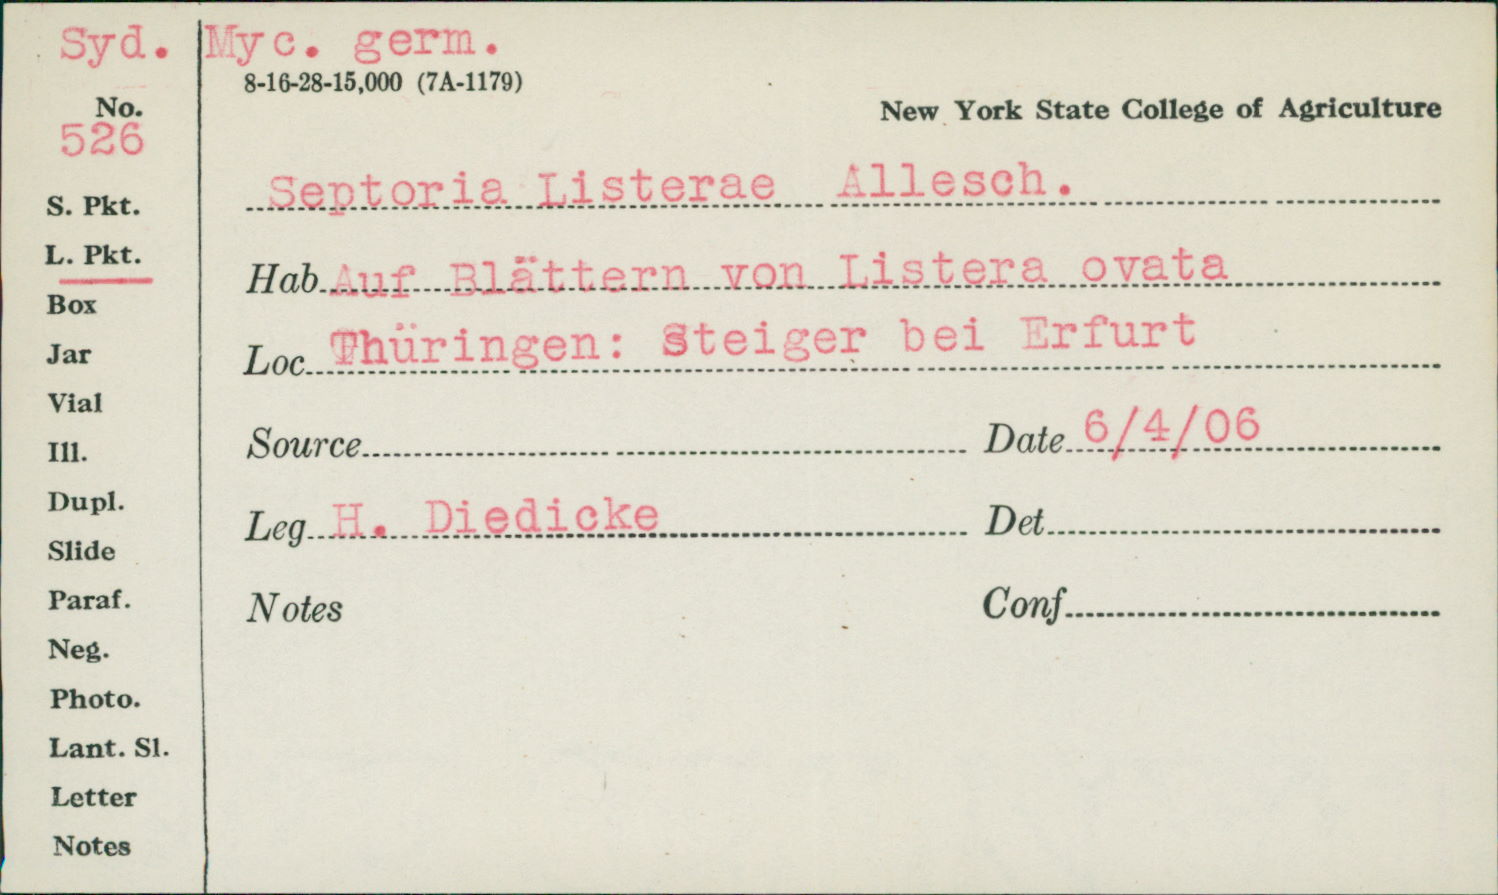 Syd. Myc. germ.
8-16-28-15,000 (7A-1179)
No.
526
New York State College of Agriculture
S. Pkt.
Septoria Listerae Allesch.
L. Pkt.
Hab. Auf Blättern von Listera ovata
Box
Jar
Loc. Thüringen: Steiger bei Erfurt
Vial
Ill.
Source
Date 6/4/06
Dupl.
Leg. H. Diedicke
Det
Slide
Paraf.
Notes
Conf
Neg.
Photo.
Lant. Sl.
Letter
Notes